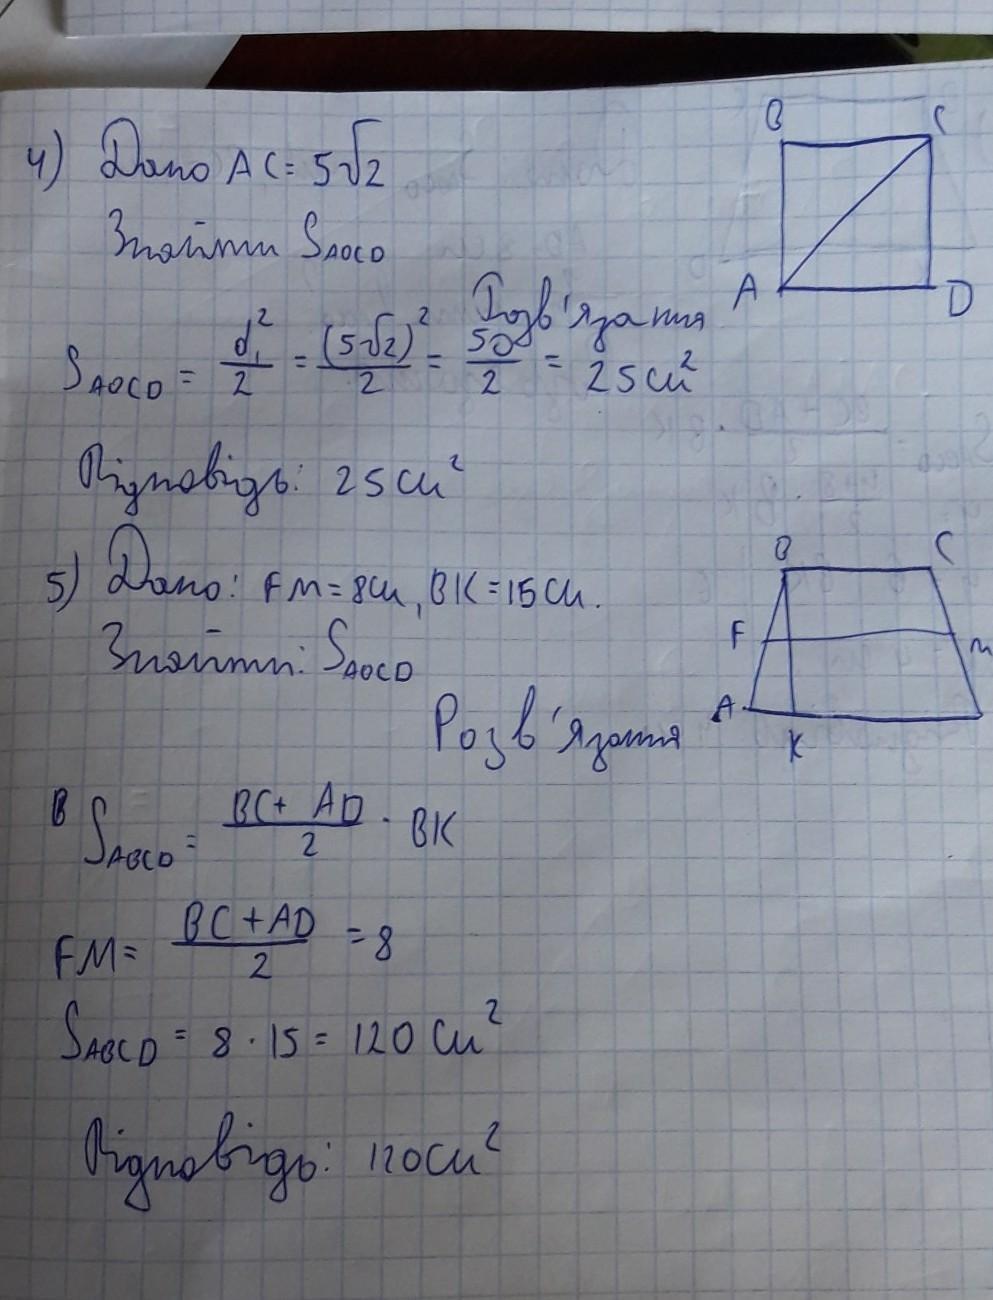 4) Дано AC = 5√2
Знайти S ABCD
Розв'язання
S ABCD = d₁²/2 = (5√2)²/2 = 50/2 = 25 см²
Відповідь: 25 см²
B C
A D
5) Дано: FM = 8 см, BK = 15 см.
Знайти: S ABCD
Розв'язання
B C
F M
A
K
B S ABCD = (BC + AD)/2 · BK
FM = (BC + AD)/2 = 8
S ABCD = 8 · 15 = 120 см²
Відповідь: 120 см²